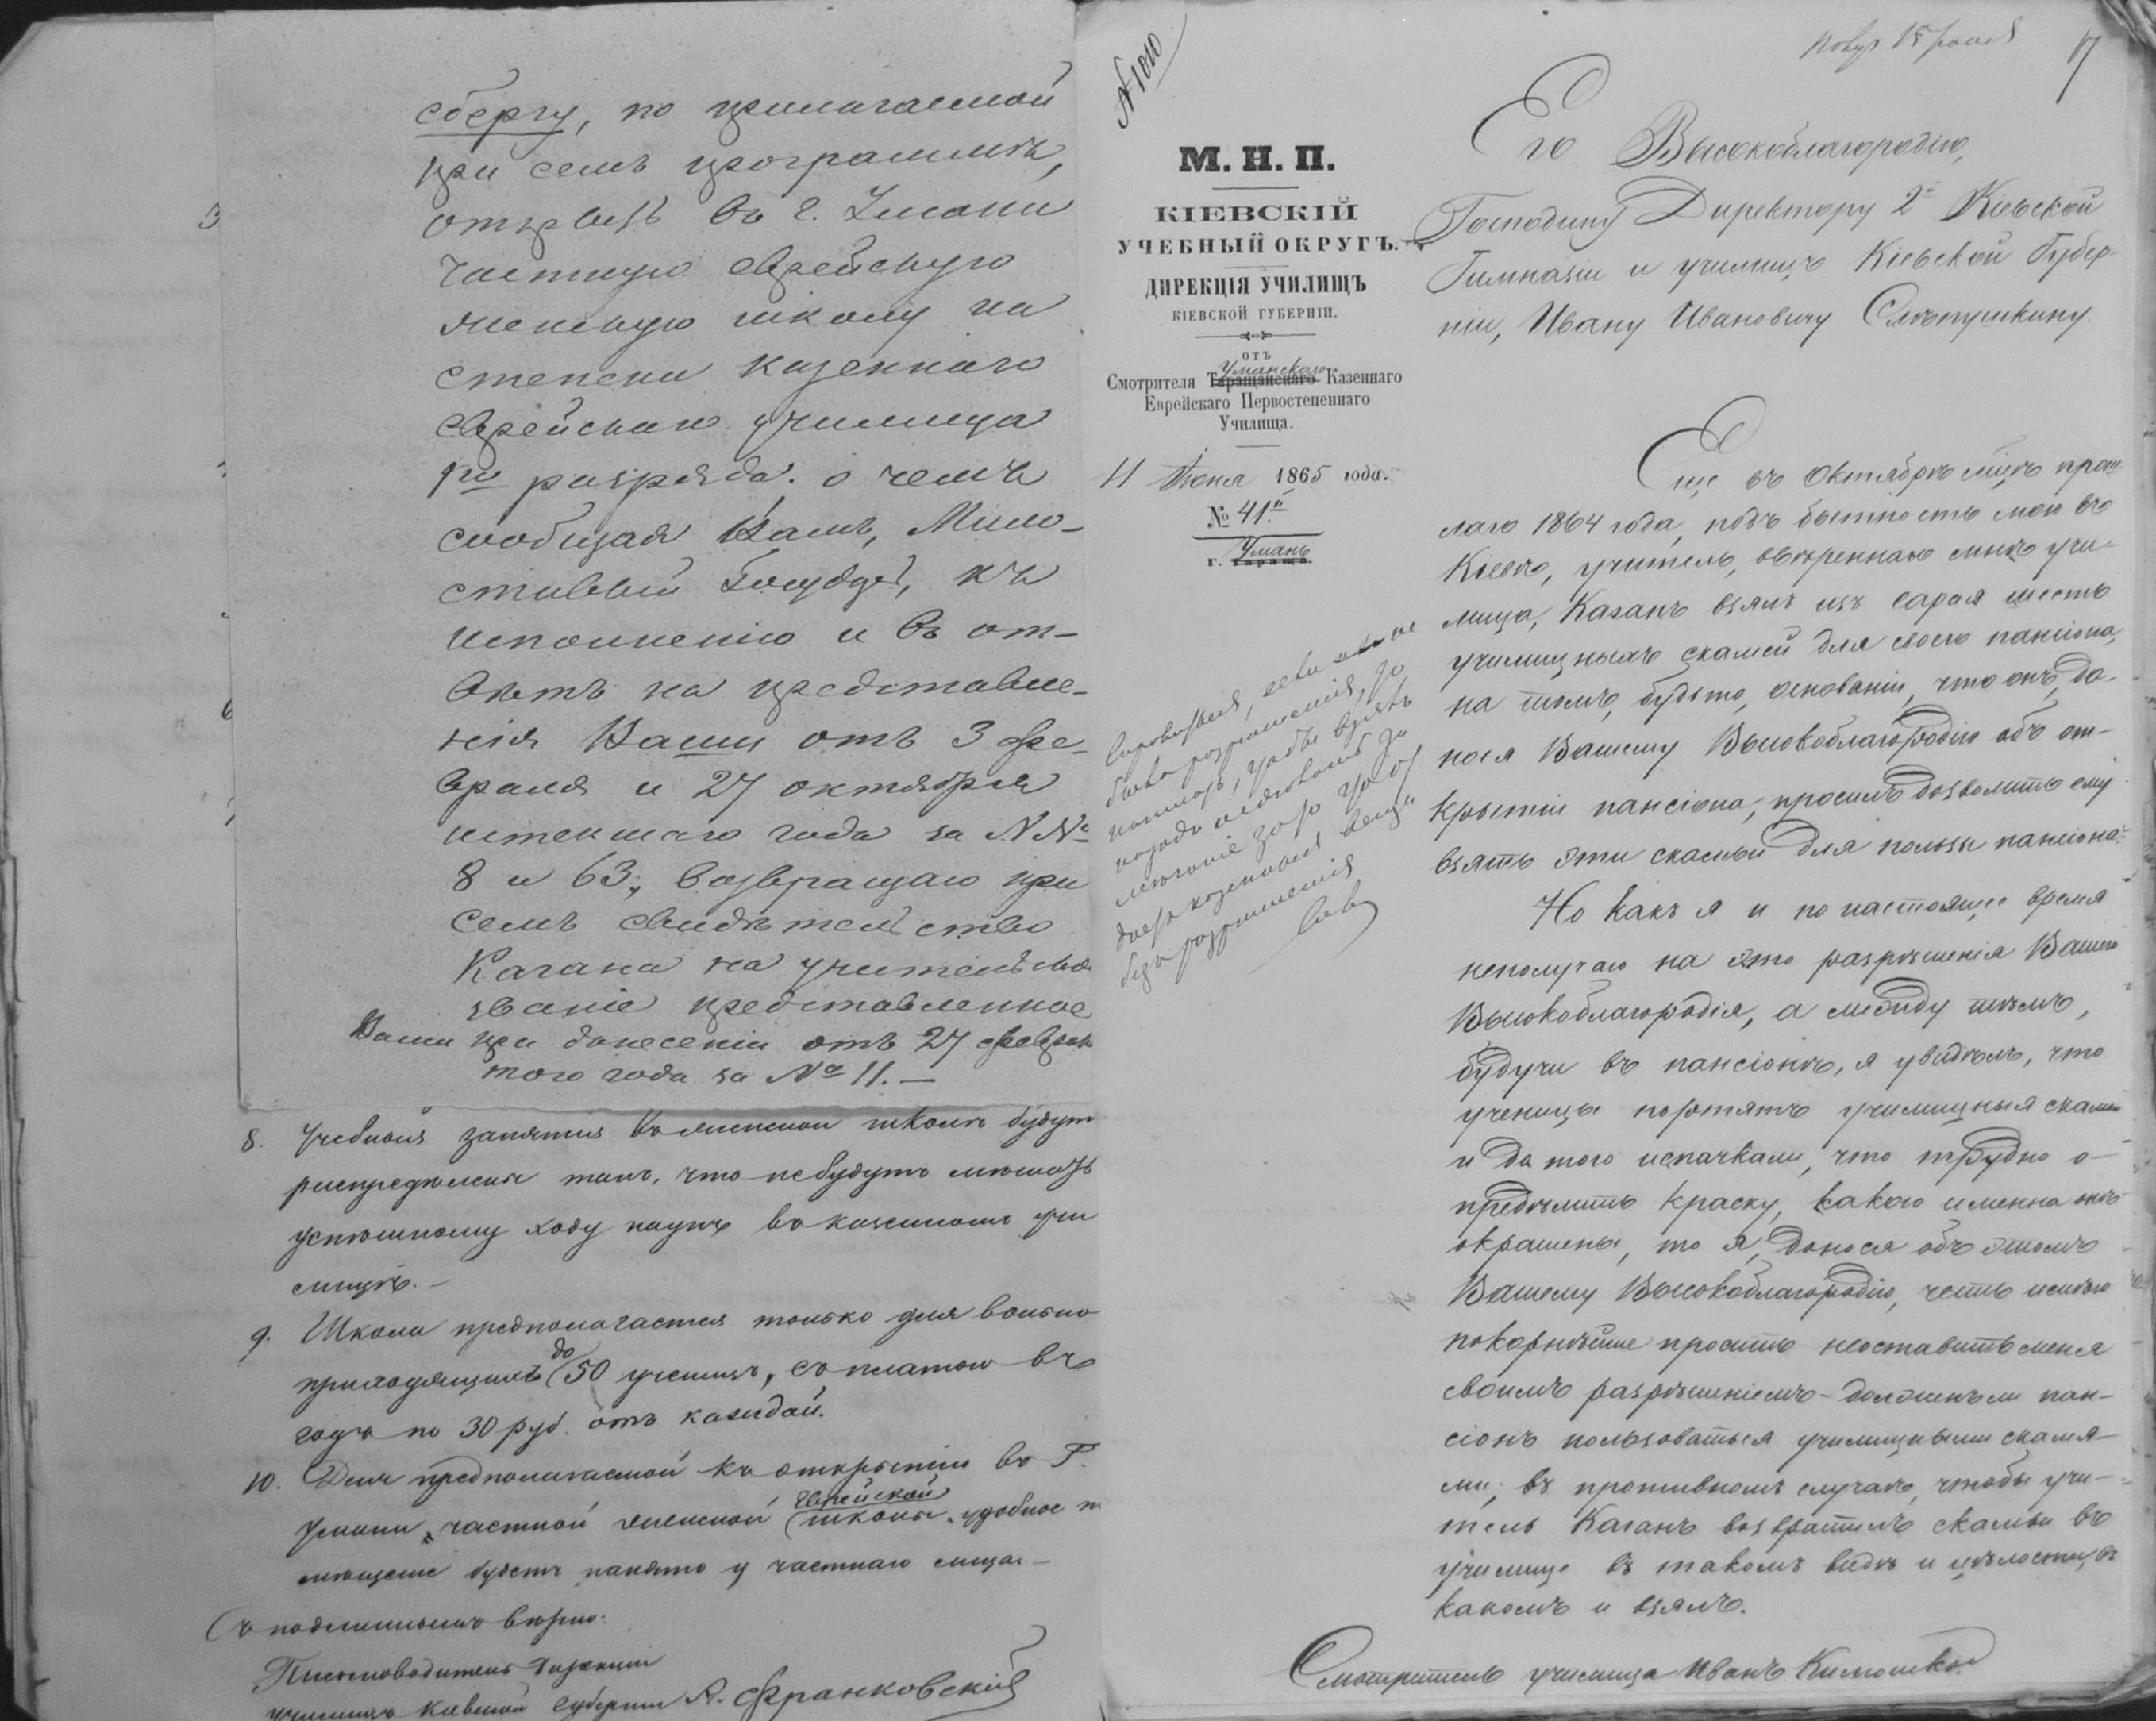 сбергу, по прилагаемой
при семъ программѣ,
открыть въ г. Умани
частную еврейскую
женскую школу на
степени казеннаго
еврейскаго училища
1го разряда. о чемъ
сообщая Вамъ, Мило-
стивый Государь, къ
исполненію и въ от-
вѣтъ на представле-
нія Ваши отъ 3 фе-
враля и 27 октября
истекшаго года за №№
8 и 63, возвращаю при
семъ свидѣтельство
Кагана на учительское
званіе представленное
Вами при донесеніи отъ 27 февраля
того года за № 11. —
8. Учебныя занятія въ женской школѣ будутъ
распредѣлены такъ, что не будутъ мѣшать
успѣшному ходу наукъ въ казенномъ учи
лищѣ. —
9. Школа предполагается только для вольно
приходящихъ до 50 ученицъ, съ платою въ
годъ по 30 руб. отъ каждой.
10. Для предполагаемой къ открытію въ Г.
Умани частной женской еврейской школы, удобное по
мѣщеніе будетъ нанято у частнаго лица —
Съ подлиннымъ вѣрно:
Письмоводитель Дирекціи
училищъ Кіевской Губерніи А. Франковскій
№ 1010
17
М. Н. П.
КІЕВСКІЙ
УЧЕБНЫЙ ОКРУГЪ.
ДИРЕКЦІЯ УЧИЛИЩЪ
КІЕВСКОЙ ГУБЕРНІИ.
ОТЪ
Уманскаго
Смотрителя Таращанскаго Казеннаго
Еврейскаго Первостепеннаго
Училища.
11 Июня 1865 года.
№ 41.
Умань
г. Тараща.
было разрѣшенія, то
безъ разрѣшенія
Его Высокоблагородію,
Господину Директору 2й Кіевской
Гимназіи и училищъ Кіевской Губер-
ніи, Ивану Ивановичу Слѣпушкину.
Еще въ Октябрѣ мѣсяцѣ прош-
лаго 1864 года, подъ бытность мою въ
Кіевѣ, учитель, ввѣреннаго мнѣ учи-
лища, Каганъ взялъ изъ сарая шесть
училищныхъ скамей для своего пансіона,
на томъ, будьто, основаніи, что онъ, до-
нося Вашему Высокоблагородію объ от-
крытіи пансіона, просилъ дозволить ему
взять эти скамьи для пользы пансіона.
Но какъ я и по настоящее время
неполучаю на это разрѣшенія Вашего
Высокоблагородія, а между тѣмъ,
будучи въ пансіонѣ, я увидѣлъ, что
ученицы портятъ училищныя скамьи
и до того испачкали, что трудно о-
предѣлить краску, какою именно онѣ
окрашены, то я, донося объ этомъ
Вашему Высокоблагородію, честь имѣю
покорнѣйше просить неоставить меня
своимъ разрѣшеніемъ - долженъ ли пан-
сіонъ пользоваться училищными скамья-
ми; въ противномъ случаѣ, чтобы учи-
тель Каганъ возвратилъ скамьи въ
училище въ такомъ видѣ и цѣлости, въ
какомъ и взялъ.
Смотритель училища Иванъ Климошко.